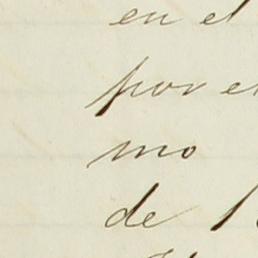 en el
por e
mo
de